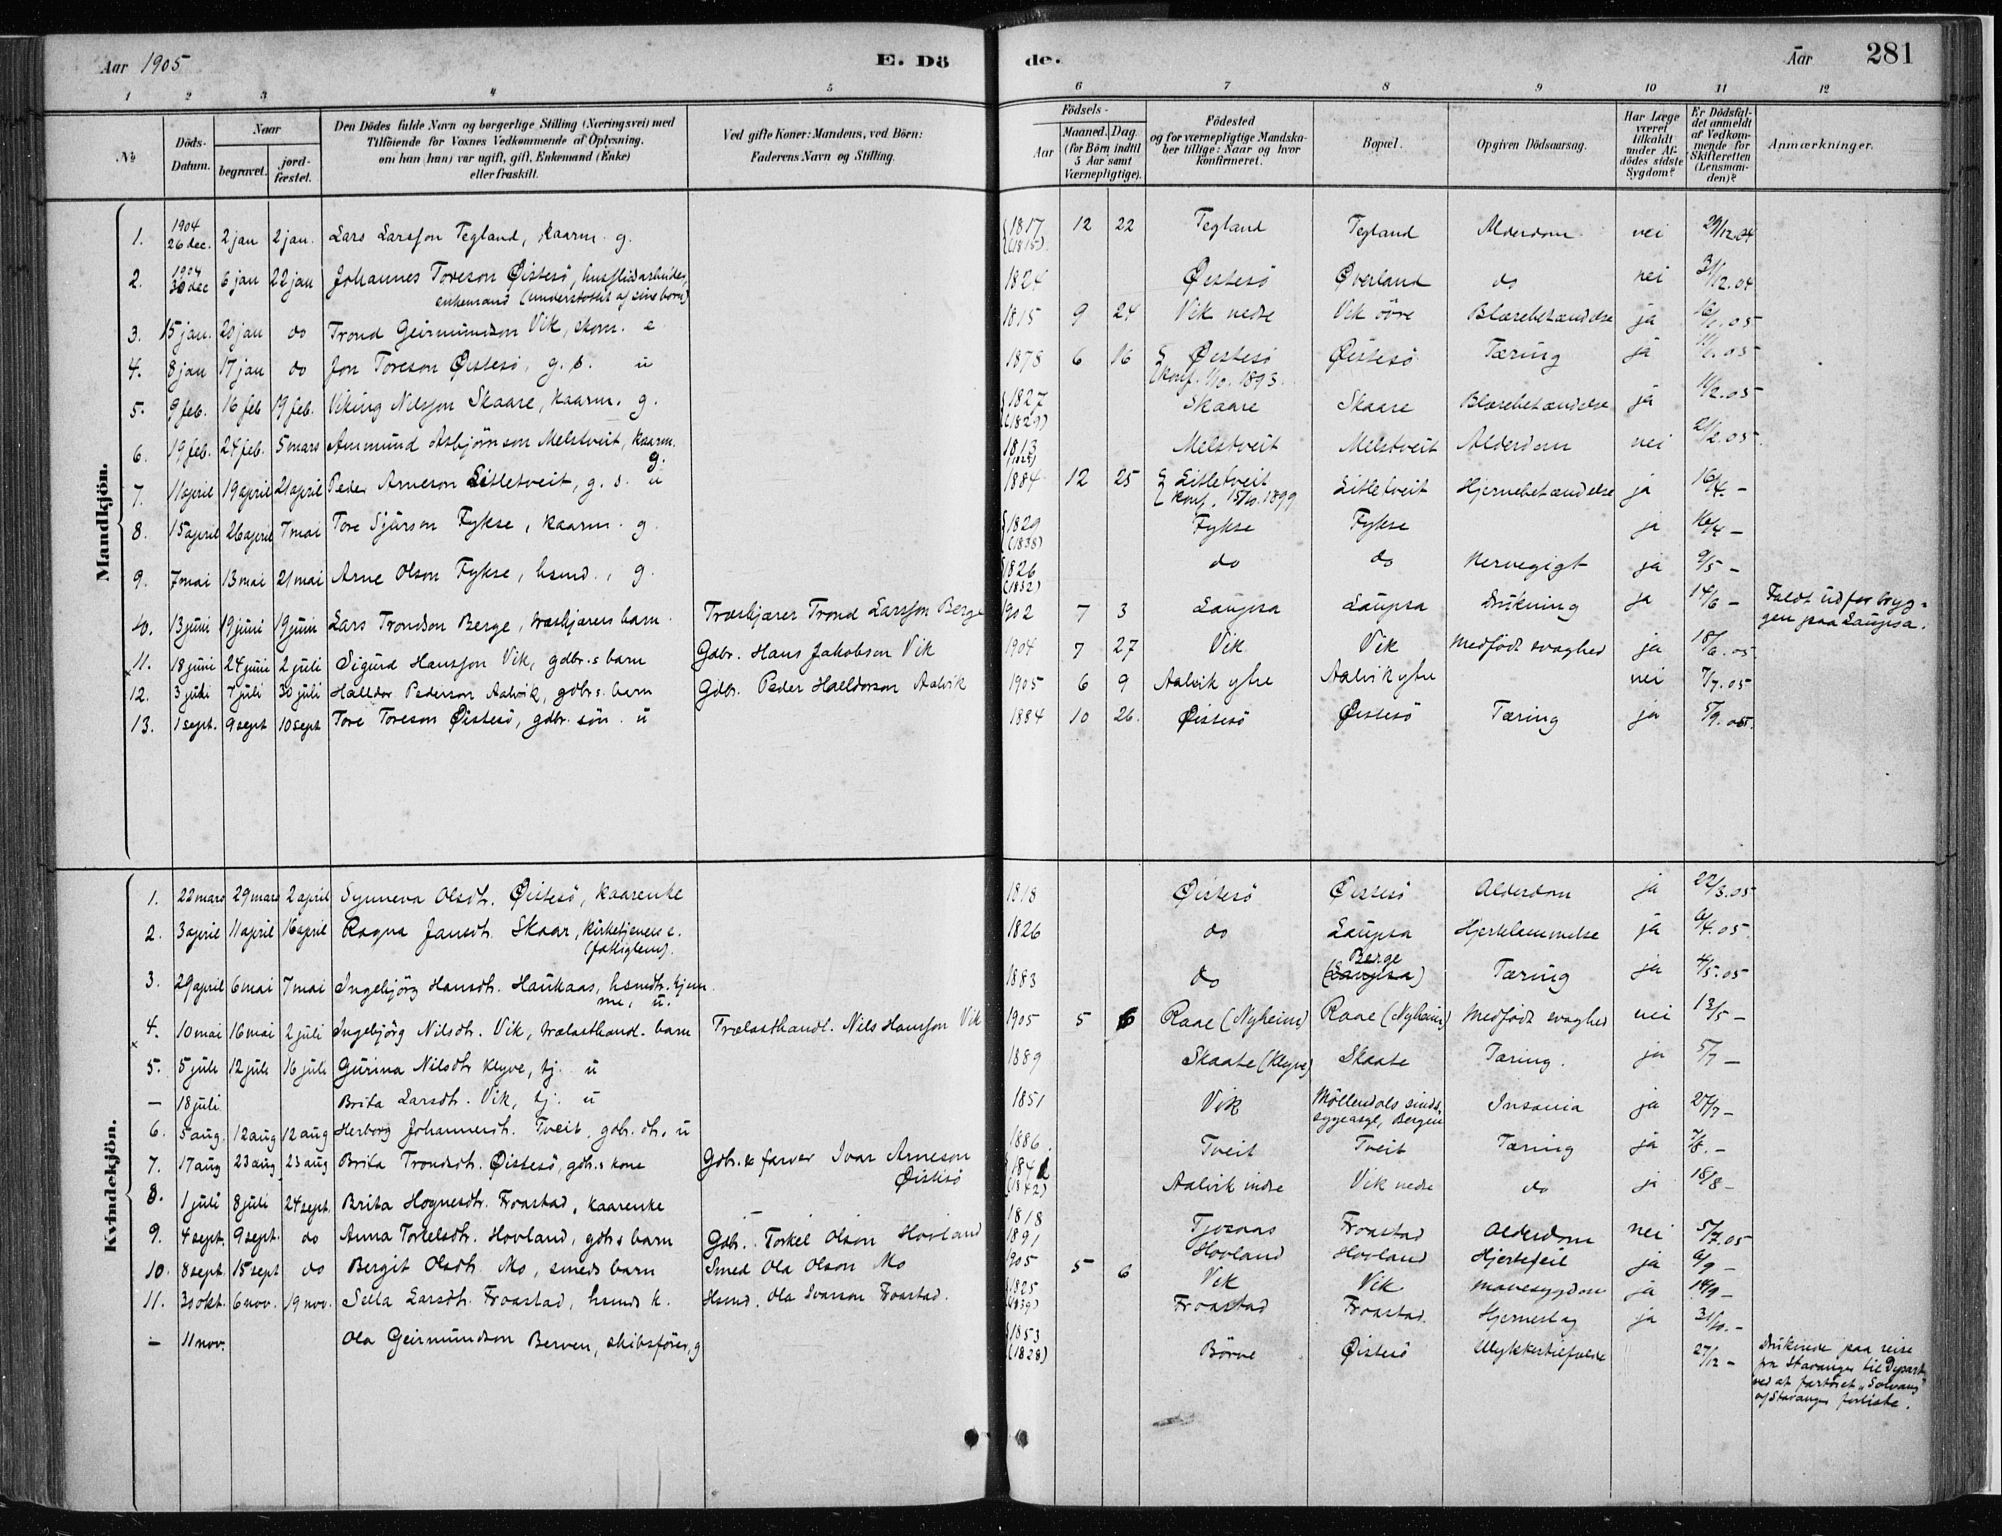 Aar 1905
E. Dö
de.
Aar
281
1 2 3 4 5 6 7 8 9 10 11 12
№
Döds-Datum.
Naar
begravet.
jordfæstet.
Den Dödes fulde Navn og borgerlige Stilling (Næringsvei) med
Tilföiende for Voxnes Vedkommende af Oplysning,
om han (hun) var ugift, gift, Enkemand (Enke)
eller fraskilt.
Ved gifte Koner: Mandens, ved Börn:
Faderens Navn og Stilling.
Födsels-
Aar
Maaned. Dag.
(for Börn indtil
5 Aar samt
Værnepligtige).
Födested
og for værnepligtige Mandskaber tillige: Naar og hvor
konfirmeret.
Bopæl.
Opgiven Dödsaarsag.
Har Læge
været
tilkaldt
under Afdödes sidste
Sygdom?
Er Dödsfaldet anmeldt
af Vedkommende for
Skifteretten
(Lensmanden)?
Anmærkninger.
Mandkjön.
1. 1904 26 dec. 2 jan 2 jan. Lars Larsson Tegland, kaarm. g. 1817 (1815) 12 22 Tegland Tegland Alderdom nei 29/12.04
2. 1904 30 dec 6 jan 22 jan Johannes Toreson Øistesö, husflidsarbeider, enkemand (understöttet af sine börn) 1824 Øistesö Øverland do nei 31/12.04
3. 15 jan. 20 jan do Trond Geirmundson Vik, skom. e 1815 9 24 Vik nedre Vik övre Blærebetændelse ja 16/1.05
4. 8 jan 17 jan do Jon Toreson Øistesö, g. s. u 1878 6 16 Øistesö konf. 1/10.1893. Øistesö Tæring ja 11/1.05
5. 9 feb. 16 feb 19 feb. Viking Nilsson Skaare, kaarm. g. 1827 (1829) Skaare Skaare Blærebetændelse ja 11/2.05
6. 19 feb. 24 feb. 5 mars Ammund Asbjörnson Melstveit, kaarm. g. 1813 Melstveit Melstveit Alderdom nei 21/2.05
7. 11 april 19 april 21 april Peder Arneson Litletveit, g. s. u 1884 12 25 Litletveit konf. 15/10.1899 Litletveit Hjernebetændelse ja 16/4. -
8. 15 april 26 april 7 mai Tore Sjurson Fykse, kaarm. g. 1829 (1838) Fykse Fykse ja 16/4 -
9. 7 mai 13 mai 21 mai Arne Olson Fykse, hsmd., g. 1826 (1832) do do Nervegigt ja 9/5 -
10. 13 juni 19 juni 19 juni Lars Trondson Berge, træskjærers barn. Træskjærer Trond Larsson Berge 1902 7 3 Laupsa Laupsa Drukning ja 14/6 - Faldt ud for bryggen paa Laupsa.
11. 18 juni 24 juni 2 juli Sigurd Hansson Vik, gdbr.s barn Gdbr. Hans Jakobson Vik 1904 7 27 Vik Vik Medfödt svaghed ja 18/6.05
12. 3 juli 7 juli 30 juli Halldor Pederson Aalvik, gdbr.s. barn Gdbr. Peder Halldorson Aalvik 1905 6 9 Aalvik ytre Aalvik ytre nei 7/7.05
13. 1 sept. 9 sept 10 sept Tore Toreson Øistesö, gdbr. sön. u 1884 10 26. Øistesö Øistesö Tæring ja 5/9.05.
Kvindekjön.
1. 22 mars 29 mars 2 april Synneva Olsdtr. Øistesö, kaarenke 1818 Øistesö Øistesö Alderdom ja 22/3.05
2. 3 april 11 april 16 april Ragna Jansdtr. Skaar, kirketjeners e. (fattiglem). 1826 do Laupsa Hjertelammelse ja 6/4.05
3. 29 april 6 mai 7 mai Ingebjörg Hansdtr. Haukaas, hsmdtr. hjemme, u. 1883 do Berge (Laupsa) Tæring ja 4/5.05
4. 10 mai 16 mai 2 juli Ingebjörg Nilsdtr. Vik, trælasthandl. barn Trælasthandl. Nils Hansson Vik 1905 5 6 Raae (Nyheim) Raae (Nyheim) Medfödt svaghed nei 13/5 -
5. 5 juli 12 juli 16 juli Gurina Nilsdtr Klyve, tj. u 1889 Skaate (Klyve) Skaate Tæring. ja 5/7 -
- 18 juli Brita Larsdtr. Vik, tj. u 1851 Vik Möllendals sindssygeasyl, Bergen Insania ja 27/7 -
6. 5 aug. 12 aug 12 aug Herborg Johannesdtr. Tveit. gdbr. dtr. u 1886 Tveit Tveit Tæring ja 7/8. -
7. 17 aug 23 aug 23 aug Brita Trondsdtr. Øistesö, gdbr.s kone Gdbr. & farver Ivar Arneson Øistesö 1841 (1842) Aalvik indre Vik nedre do ja 18/8 -
8. 1 juli 8 juli 24 sept. Brita Hognesdtr. Froastad, kaarenke - 1818 Tjosaas Froastad Alderdom nei 5/7.05
9. 4 sept. 9 sept. do Anna Torkelsdtr. Hovland, gdbr.s barn Gdbr. Torkel Olson Hovland 1891 Hovland Hovland Hjertefeil ja 6/9 -
10. 8 sept. 15 sept do Bergit Olsdtr. Mo, smeds barn Smed Ola Olson Mo 1905 5 6 Vik Vik Mavesygdom ja 14/9 -
11. 30 okt. 6 nov. 19 nov. Sella Larsdtr. Froastad, hsmds k. Hsmd. Ola Ivarson Froastad. 1825 (1839) Froastad Froastad. Hjerneslag ja 31/10. -
- 11 nov. Ola Geirmundson Berven, skibsförer, g 1853 (1828) Börve Øistesö Ulykkestilfælde 27/12 - Druknede paa reise fra Stavanger til Dysart ved at fartöiet "Solvang" af Stavanger forliste.